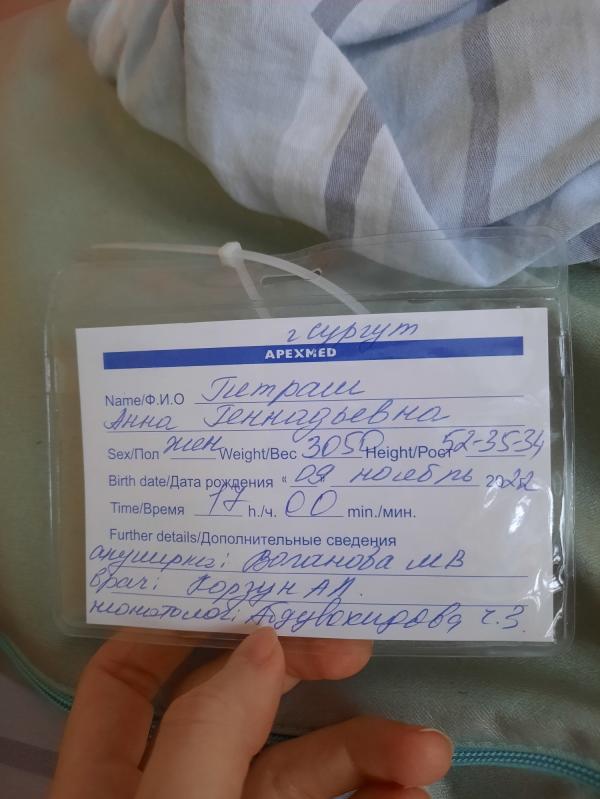 г Сургут
APEXMED
Name/Ф.И.О Питраш
Анна Геннадьевна
Sex/Пол жен Weight/Вес 3050 Height/Рост 52-35-34
Birth date/Дата рождения « 09 ноябрь 2022
Time/Время 17 h./ч. 00 min./мин.
Further details/Дополнительные сведения
акушерка: Воганова МВ
врач: Корзун АП.
неонатолог: Абдувохидова Ч.З.